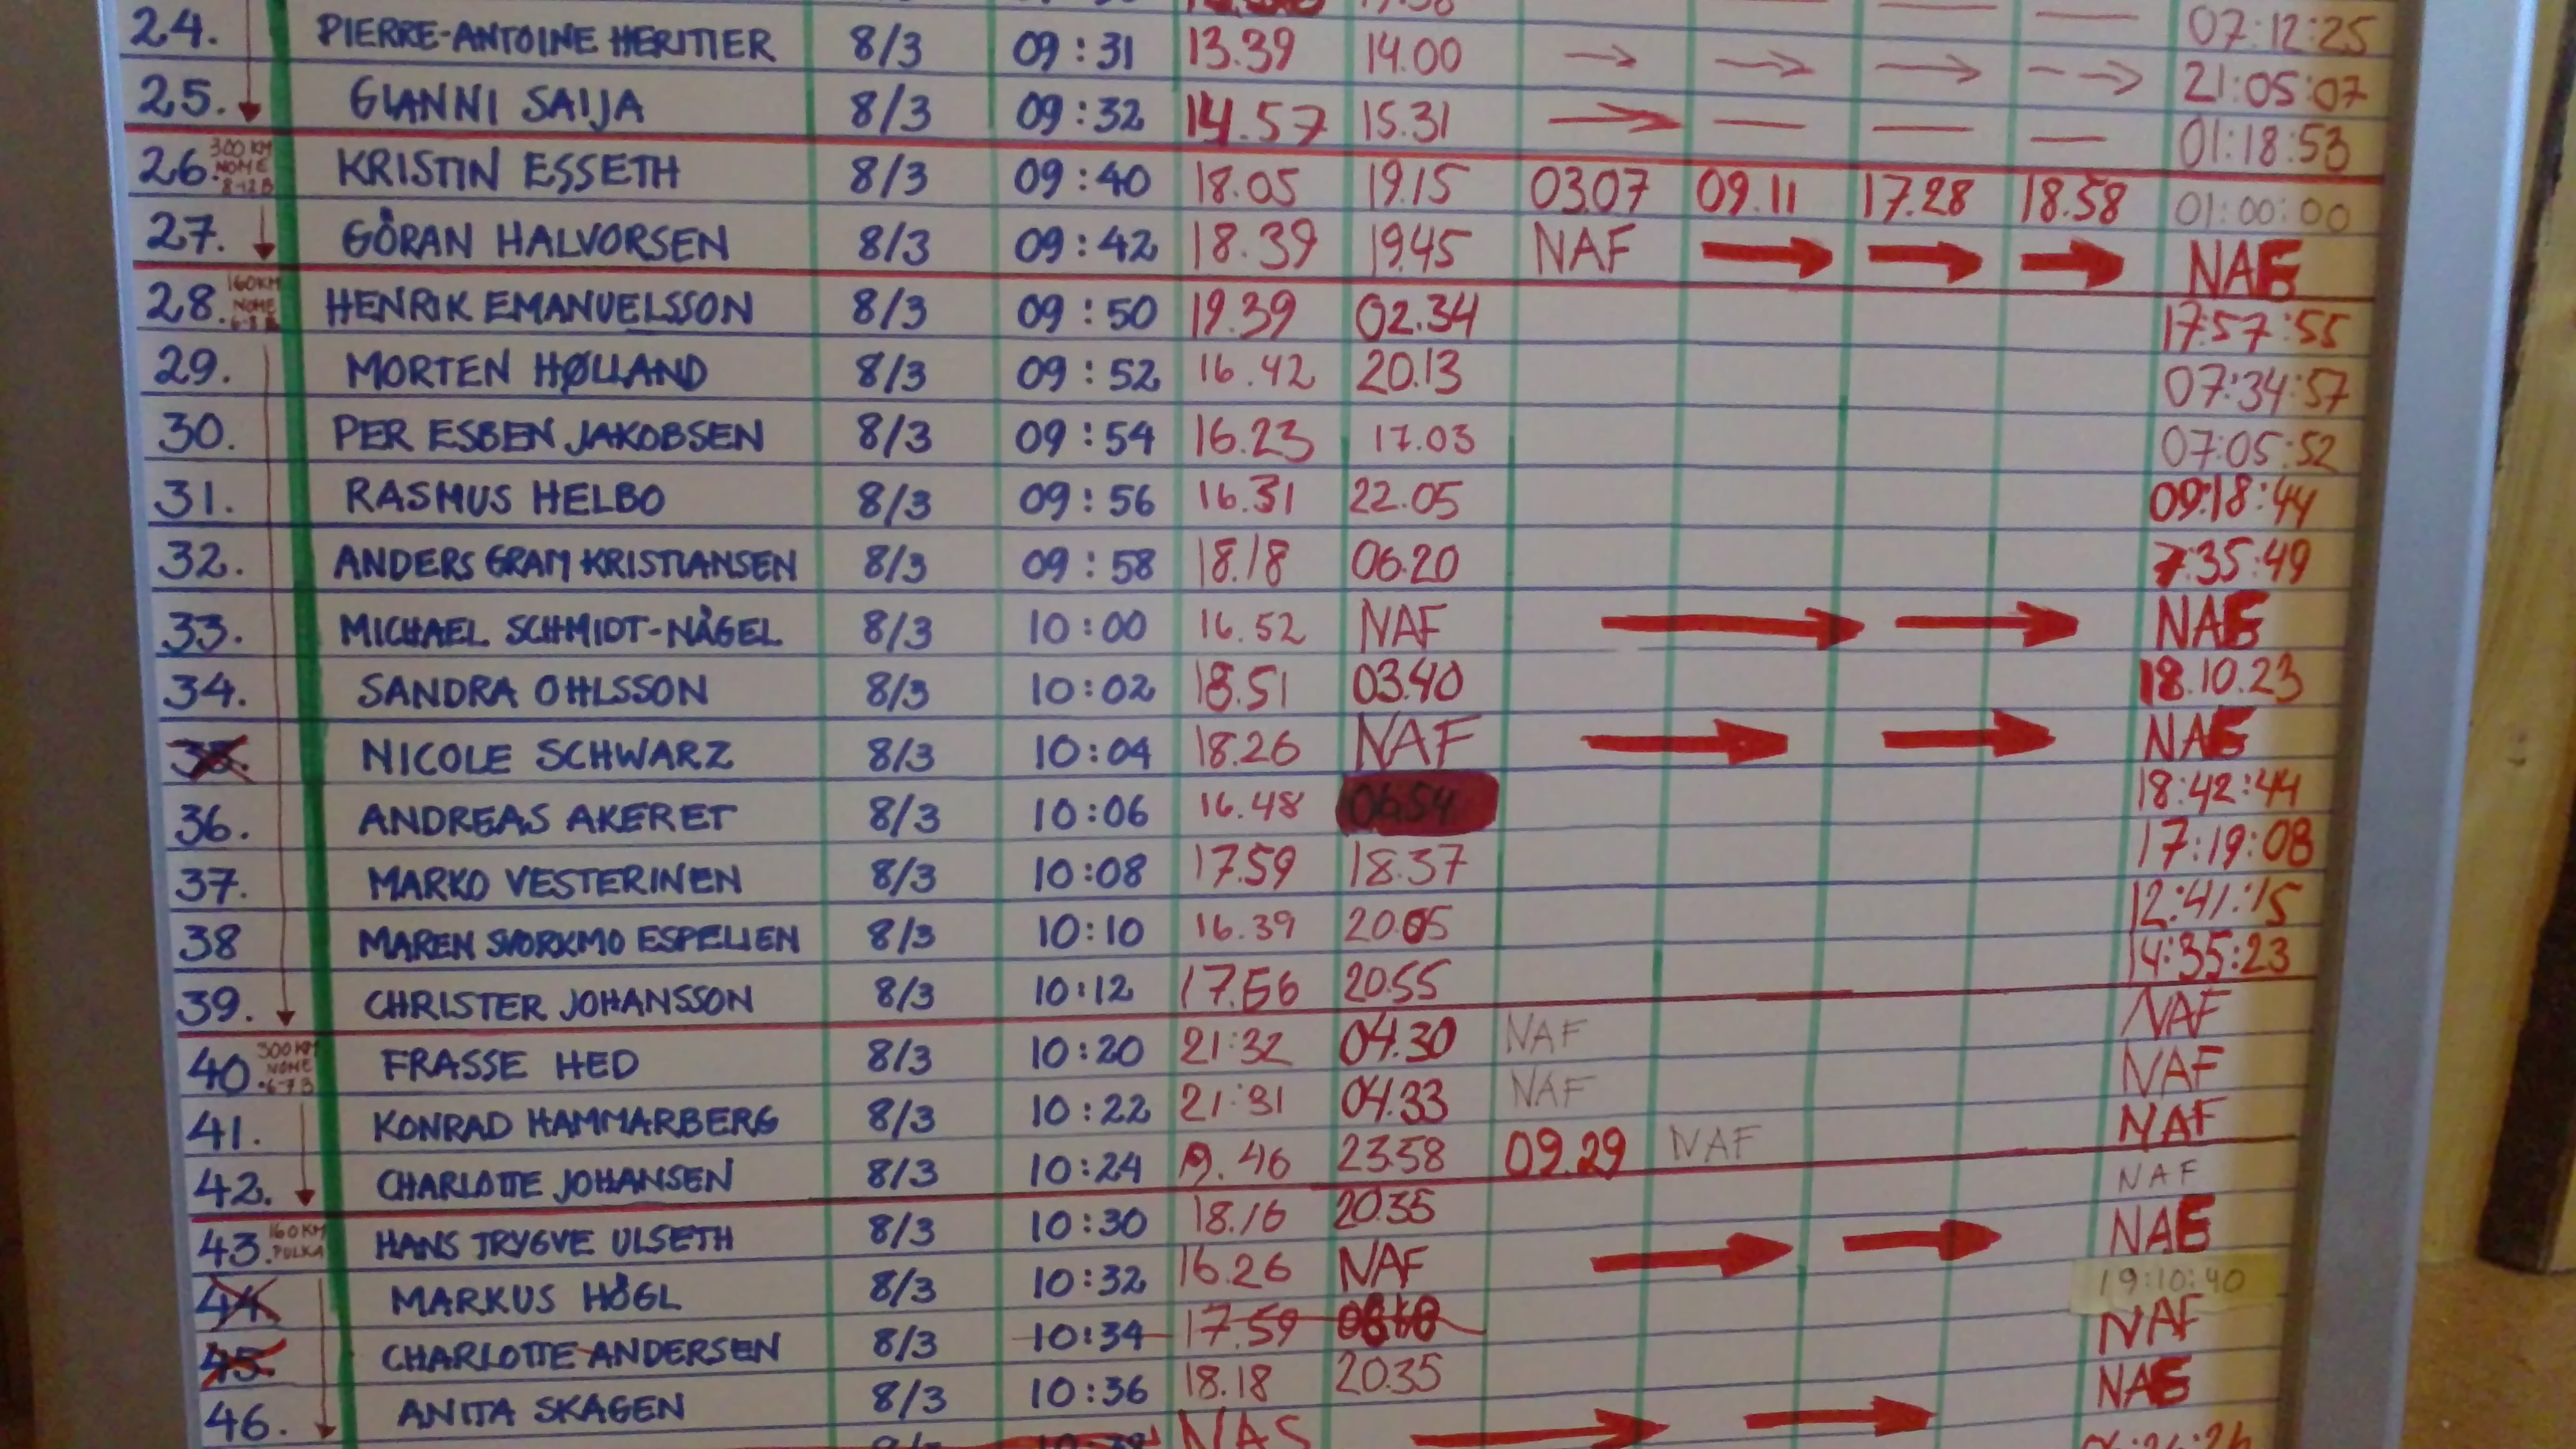 24. PIERRE-ANTOINE HERITIER 8/3 09:31 13.39 14.00 07:12:25
25. GIANNI SAIJA 8/3 09:32 14.57 15.31 21:05:07
01:18:53
26. 300 KM NOME 8-12 B KRISTIN ESSETH 8/3 09:40 18.05 19.15 03.07 09.11 17.28 18.58 01:00:00
27. GÖRAN HALVORSEN 8/3 09:42 18.39 19.45 NAF NAF
28. 160KM NOME HENRIK EMANUELSSON 8/3 09:50 19.39 02.34 17:57:55
29. MORTEN HØLLAND 8/3 09:52 16.42 20.13 07:34:57
30. PER ESBEN JAKOBSEN 8/3 09:54 16.23 17.03 07:05:52
31. RASMUS HELBO 8/3 09:56 16.31 22.05 09:18:44
32. ANDERS GRAM KRISTIANSEN 8/3 09:58 18.18 06.20 7:35:49
33. MICHAEL SCHMIDT-NÅGEL 8/3 10:00 16.52 NAF NAF
34. SANDRA OHLSSON 8/3 10:02 18.51 03.40 18.10.23
35. NICOLE SCHWARZ 8/3 10:04 18.26 NAF NAF
36. ANDREAS AKERET 8/3 10:06 16.48 06.54 18:42:44
37. MARKO VESTERINEN 8/3 10:08 17.59 18.37 17:19:08
38 MAREN SVORKMO ESPELIEN 8/3 10:10 16.39 20.05 12:41:15
39. CHRISTER JOHANSSON 8/3 10:12 17.56 20.55 14:35:23
40. 300 KM NOME 6-7 B FRASSE HED 8/3 10:20 21:32 04.30 NAF NAF
41. KONRAD HAMMARBERG 8/3 10:22 21:31 04.33 NAF NAF
42. CHARLOTTE JOHANSEN 8/3 10:24 19.46 23.58 09.29 NAF NAF
43. 160KM PULKA HANS TRYGVE ULSETH 8/3 10:30 18.16 20.35 NAF
44 MARKUS HÖGL 8/3 10:32 16.26 NAF NAF
45. CHARLOTTE ANDERSEN 8/3 10:34 17.59 19:10:40
NAF
46. ANITA SKAGEN 8/3 10:36 18.18 20.35 NAF
NAS